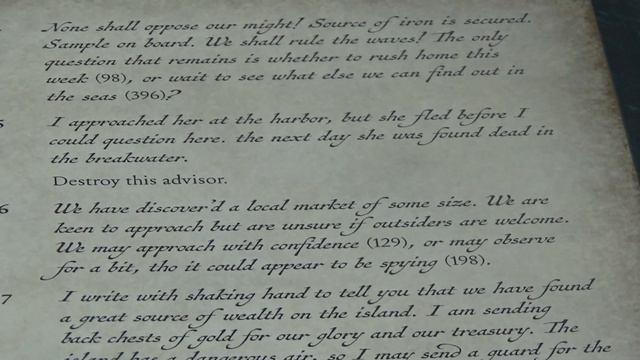 None shall oppose our might! Source of iron is secured.
Sample on board. We shall rule the waves! The only
question that remains is whether to rush home this
week (98), or wait to see what else we can find out in
the seas (396)?
5
I approached her at the harbor, but she fled before I
could question here. the next day she was found dead in
the breakwater.
Destroy this advisor.
6
We have discover'd a local market of some size. We are
keen to approach but are unsure if outsiders are welcome.
We may approach with confidence (129), or may observe
for a bit, tho it could appear to be spying (198).
7
I write with shaking hand to tell you that we have found
a great source of wealth on the island. I am sending
back chests of gold for our glory and our treasury. The
island has a dangerous air, so I may send a guard for the